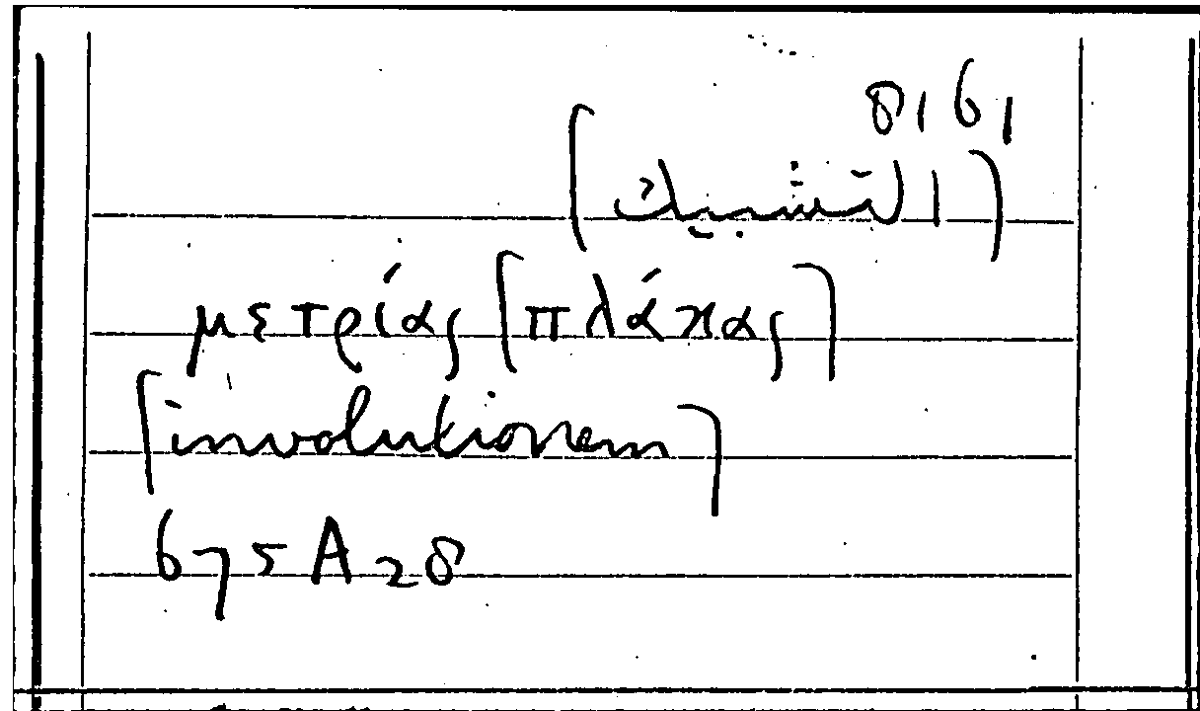 [التشبيك]
μετρίας [πλάκας]
[involutionem]
675A28